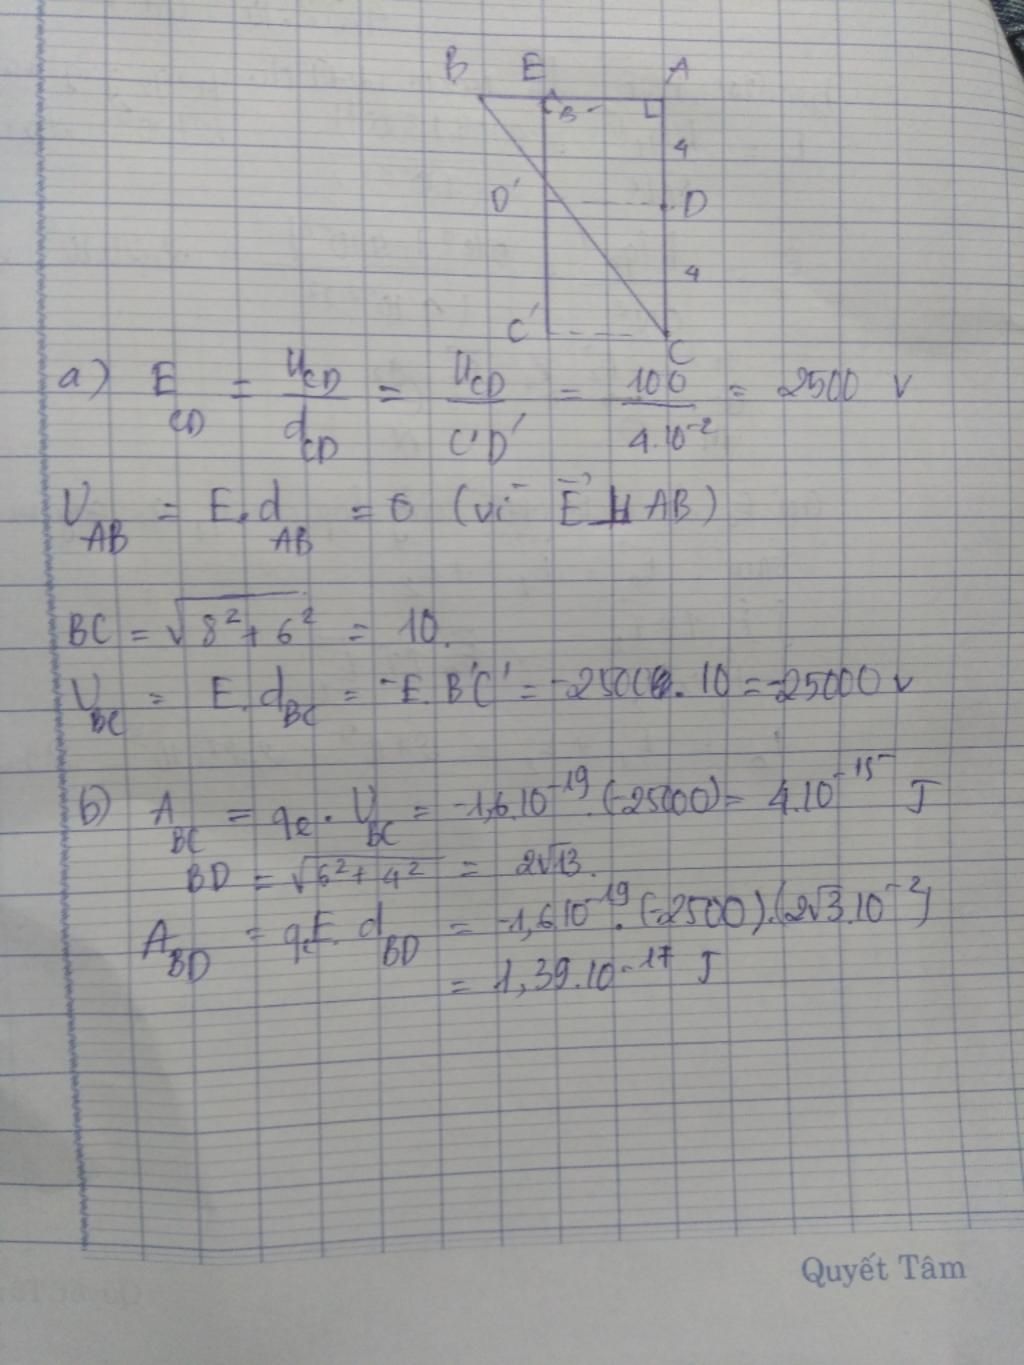 B E A
B'
4
D' D
4
C' C
a) E_CD = U_CD / d_CD = U_CD / C'D' = 100 / 4.10^-2 = 2500 V
U_AB = E.d_AB = 0 (vì E ⊥ AB)
BC = √(8² + 6²) = 10.
U_BC = E.d_BC = -E.B'C' = -2500.10 = -25000 V
b) A_BC = q_e.U_BC = -1,6.10^-19.(-25000) = 4.10^-15 J
BD = √(6² + 4²) = 2√13.
A_BD = q_e E.d_BD = -1,6.10^-19.(-2500).(2√3.10^-2)
= 1,39.10^-17 J
Quyết Tâm